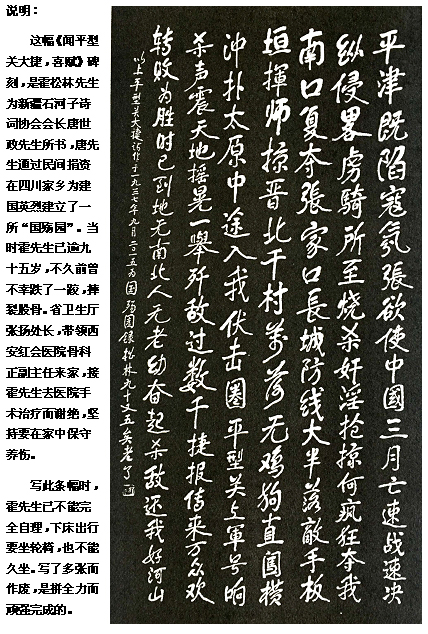 说明：
这幅《闻平型
关大捷，喜赋》碑
刻，是霍松林先生
为新疆石河子诗
词协会会长唐世
政先生所书，唐先
生通过民间捐资
在四川家乡为建
国英烈建立了一
所“国殇园”。当
时霍先生已逾九
十五岁，不久前曾
不幸跌了一跤，摔
裂股骨。省卫生厅
张扬处长，带领西
安红会医院骨科
正副主任来家，接
霍先生去医院手
术治疗而谢绝，坚
持要在家中保守
养伤。
写此条幅时，
霍先生已不能完
全自理，下床出行
要坐轮椅，也不能
久坐。写了多张而
作废，是拼全力而
顽强完成的。
平津既陷寇氛張欲使中國三月亡速战速决
纵侵畧虏騎所至烧杀奸淫抢掠何疯狂夺我
南口复夺張家口長城防线大半落敵手板
垣揮师掠晋北千村萬落无鸡狗直闖横
冲扑太原中途入我伏击圈平型关上軍号响
杀声震天地摇晃一舉歼敌过数千捷报传来万众欢
转败为胜时已到地无南北人无老幼奋起杀敌还我好河山
以上平型关大捷诗作于一九三七年九月二〇一五为国殇園録松林九十又五矣老了